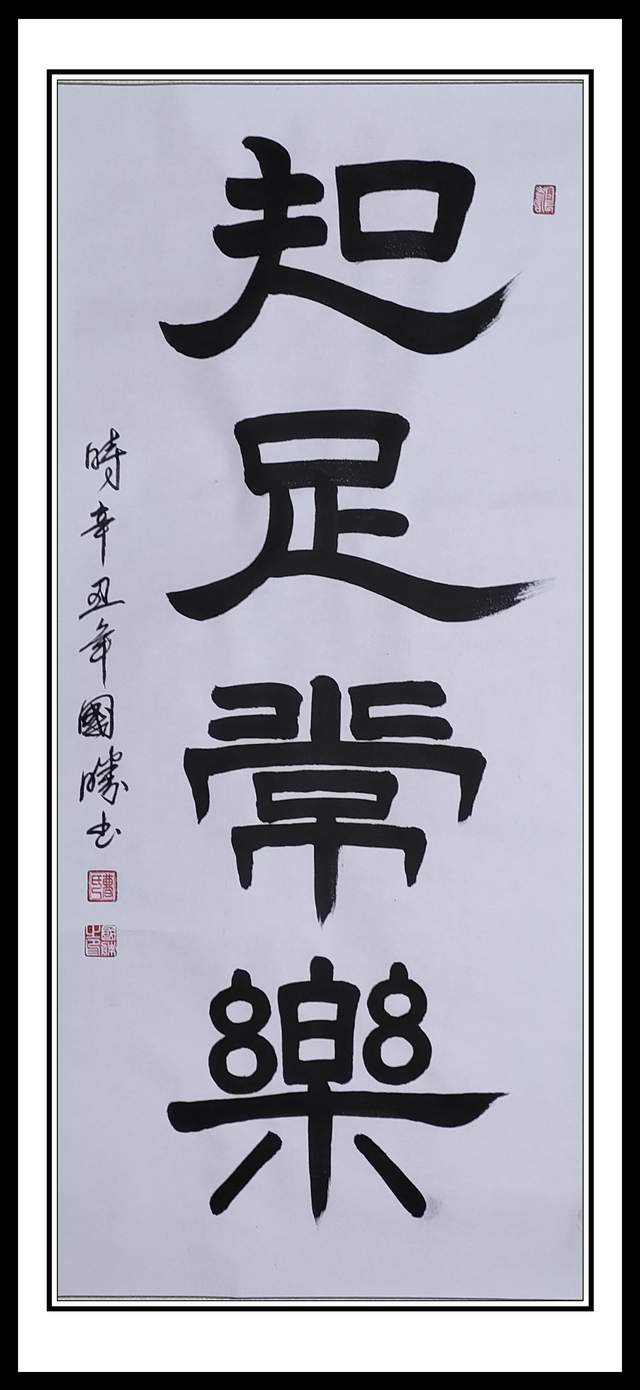 知足常樂
時辛丑年國勝書